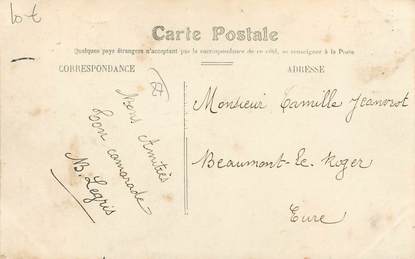 lot
Carte Postale
Quelques pays étrangers n'acceptant pas la correspondance de ce côté, se renseigner à la Poste
CORRESPONDANCE
ADRESSE
Mes Amitiés
Ton camarade
Legris
Monsieur Camille Jeanvrot
Beaumont-le-Roger
Eure